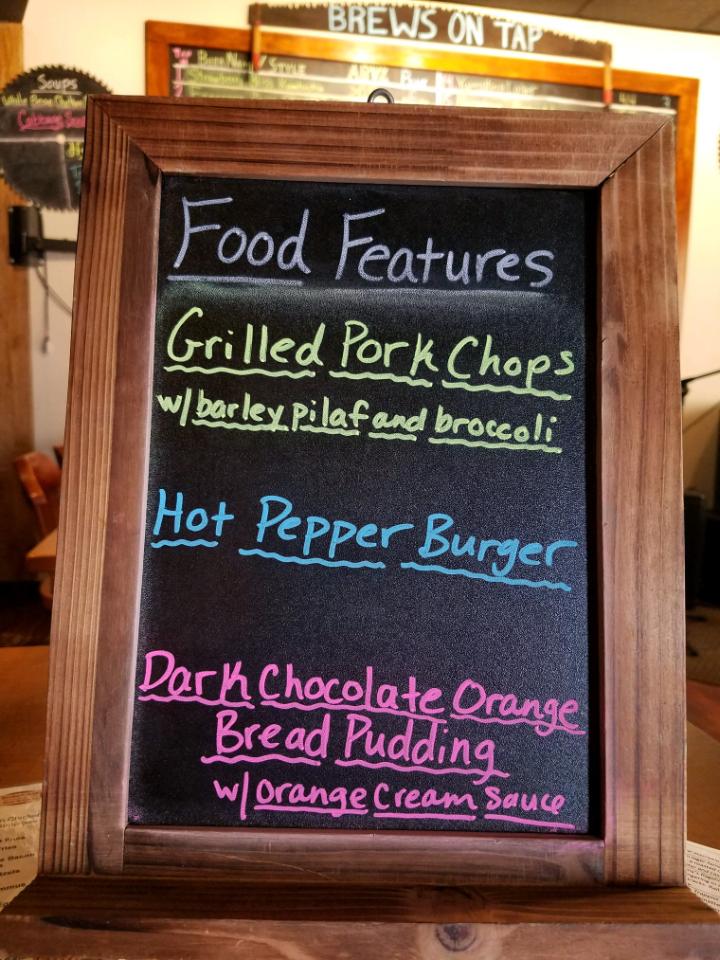 BREWS ON TAP
Soups
Food Features
Grilled Pork Chops
w/ barley pilaf and broccoli
Hot Pepper Burger
Dark Chocolate Orange
Bread Pudding
w/ Orange Cream Sauce